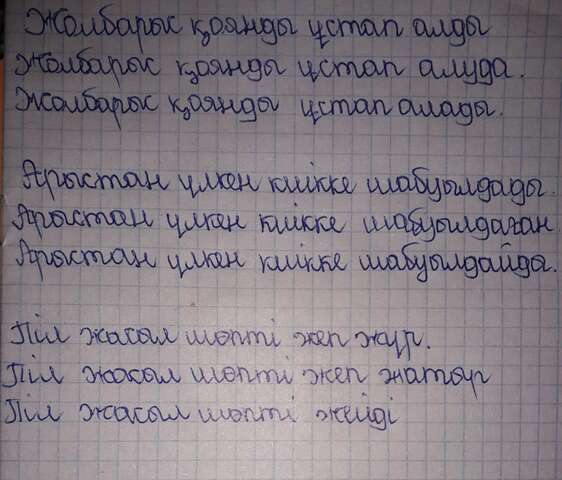 Жолбарыс қоянды ұстап алды
Жолбарыс қоянды ұстап алуда.
Жолбарыс қоянды ұстап алады.
Арыстан үлкен киікке шабуылдады.
Арыстан үлкен киікке шабуылдаған.
Арыстан үлкен киікке шабуылдайды.
Піл жасыл шөпті жеп жүр.
Піл жасыл шөпті жеп жатыр
Піл жасыл шөпті жейді